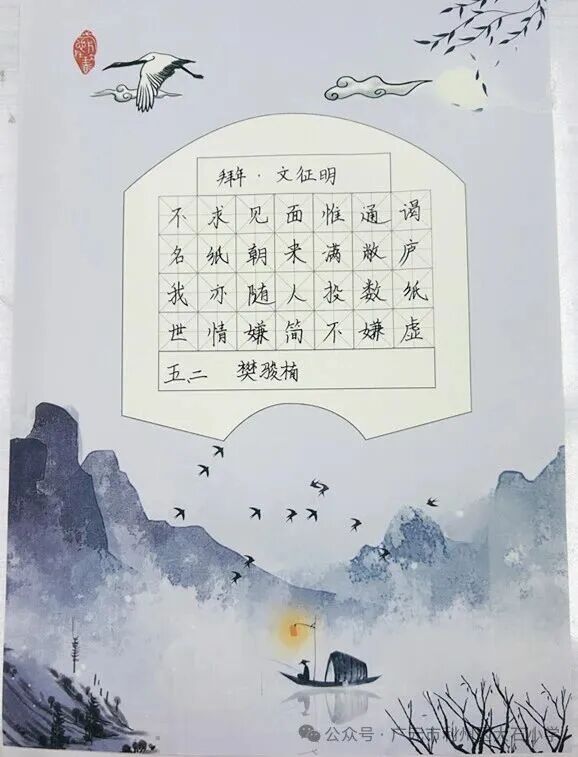 拜年·文征明
不求见面惟通谒
名纸朝来满敝庐
我亦随人投数纸
世情嫌简不嫌虚
五、二 樊骏楠
公众号·广